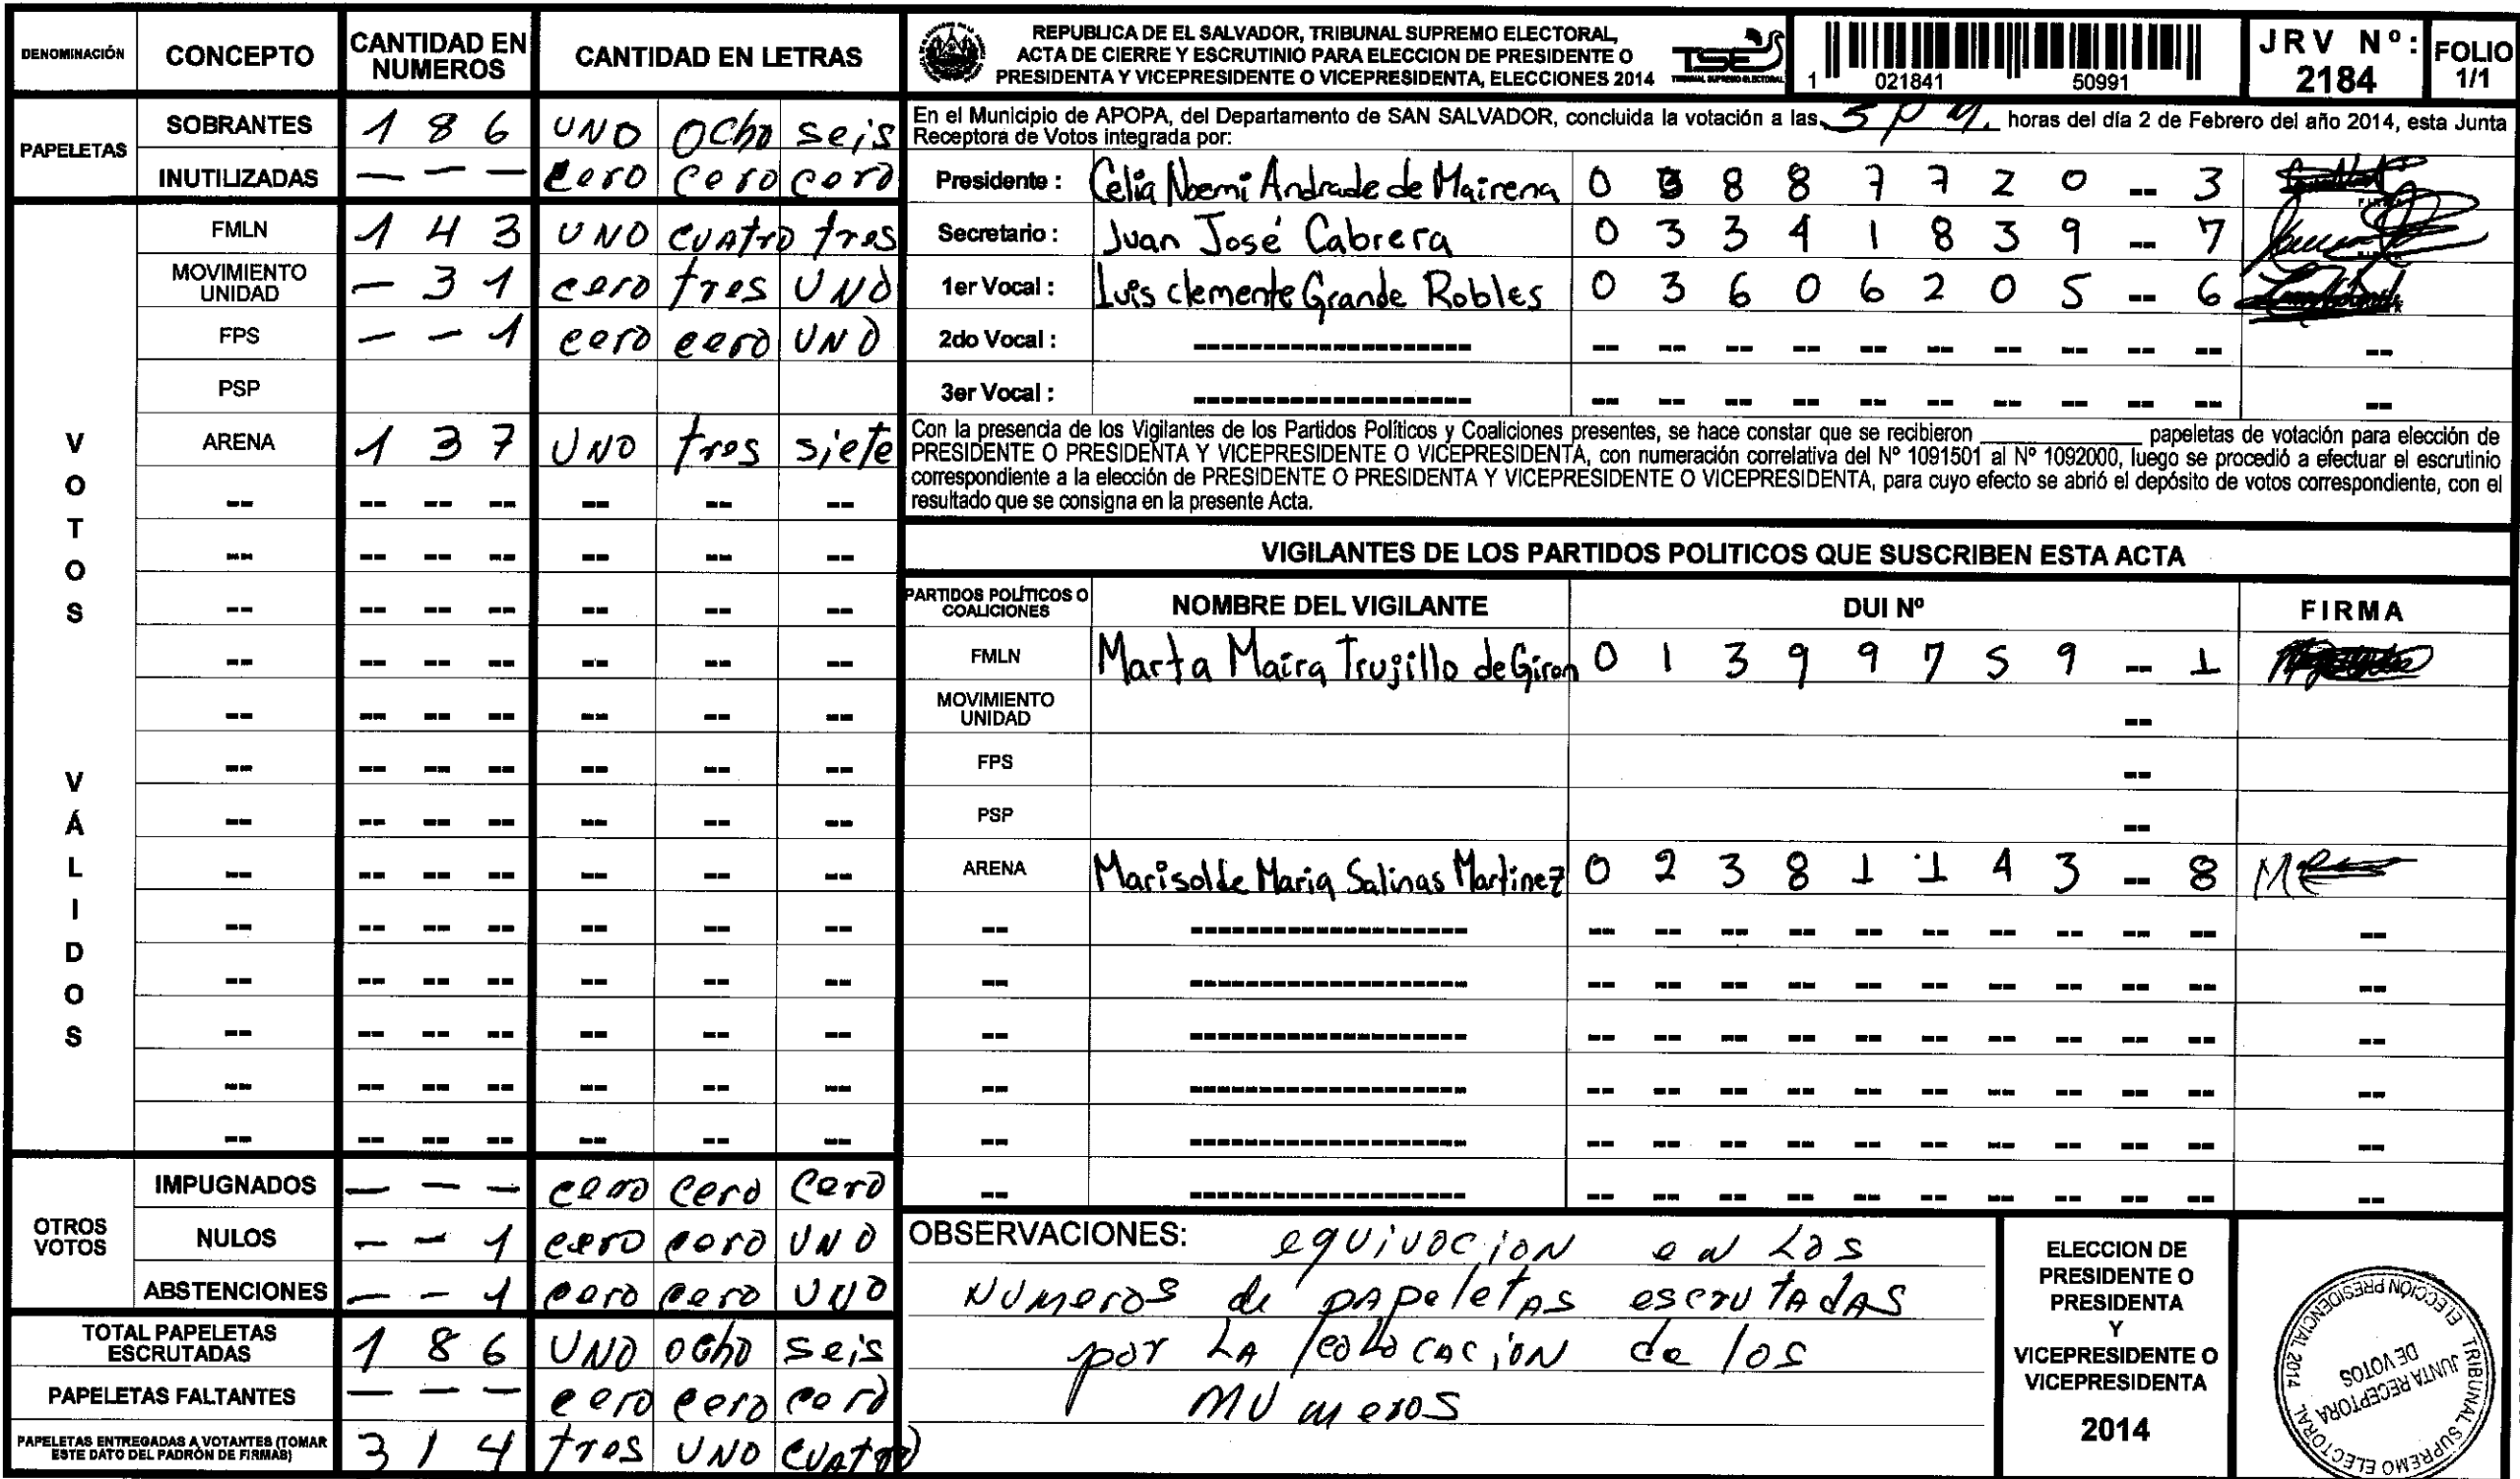 DENOMINACIÓN CONCEPTO CANTIDAD EN NUMEROS CANTIDAD EN LETRAS
PAPELETAS
SOBRANTES 1 8 6 UNO OCho seis
INUTILIZADAS — — — cero cero cero
VOTOS VÁLIDOS
FMLN 1 4 3 UNO cuatro tres
MOVIMIENTO UNIDAD — 3 1 cero tres UNO
FPS — — 1 cero cero UNO
PSP
ARENA 1 3 7 UNO tres siete
OTROS VOTOS
IMPUGNADOS — — — cero cero cero
NULOS — — 1 cero cero UNO
ABSTENCIONES — — 1 cero cero UNO
TOTAL PAPELETAS ESCRUTADAS 1 8 6 UNO ocho seis
PAPELETAS FALTANTES — — — cero cero cero
PAPELETAS ENTREGADAS A VOTANTES (TOMAR ESTE DATO DEL PADRÓN DE FIRMAS) 3 1 4 tres UNO cuatro
REPUBLICA DE EL SALVADOR, TRIBUNAL SUPREMO ELECTORAL,
ACTA DE CIERRE Y ESCRUTINIO PARA ELECCION DE PRESIDENTE O
PRESIDENTA Y VICEPRESIDENTE O VICEPRESIDENTA, ELECCIONES 2014
TSE
TRIBUNAL SUPREMO ELECTORAL
1 021841 50991
JRV Nº: 2184
FOLIO 1/1
En el Municipio de APOPA, del Departamento de SAN SALVADOR, concluida la votación a las 5 p m. horas del día 2 de Febrero del año 2014, esta Junta
Receptora de Votos integrada por:
Presidente : Celia Noemi Andrade de Mairena 0 3 8 8 7 7 2 0 -- 3
FIRMA
Secretario : Juan José Cabrera 0 3 3 4 1 8 3 9 -- 7
1er Vocal : Luis clemente Grande Robles 0 3 6 0 6 2 0 5 -- 6
2do Vocal : -------------------
3er Vocal : -------------------
Con la presencia de los Vigilantes de los Partidos Políticos y Coaliciones presentes, se hace constar que se recibieron ________ papeletas de votación para elección de
PRESIDENTE O PRESIDENTA Y VICEPRESIDENTE O VICEPRESIDENTA, con numeración correlativa del Nº 1091501 al Nº 1092000, luego se procedió a efectuar el escrutinio
correspondiente a la elección de PRESIDENTE O PRESIDENTA Y VICEPRESIDENTE O VICEPRESIDENTA, para cuyo efecto se abrió el depósito de votos correspondiente, con el
resultado que se consigna en la presente Acta.
VIGILANTES DE LOS PARTIDOS POLITICOS QUE SUSCRIBEN ESTA ACTA
PARTIDOS POLÍTICOS O COALICIONES NOMBRE DEL VIGILANTE DUI Nº FIRMA
FMLN Marta Maira Trujillo de Giron 0 1 3 9 9 7 5 9 -- 1
MOVIMIENTO UNIDAD --
FPS --
PSP --
ARENA Marisol de Maria Salinas Martinez 0 2 3 8 1 1 4 3 -- 8
OBSERVACIONES: equivocion en Los
Numeros de papeletas escrutadas
por LA colocacion de los
Numeros
ELECCION DE
PRESIDENTE O
PRESIDENTA
Y
VICEPRESIDENTE O
VICEPRESIDENTA
2014
TRIBUNAL SUPREMO ELECTORAL
ELECCIÓN PRESIDENCIAL 2014
JUNTA RECEPTORA
DE VOTOS